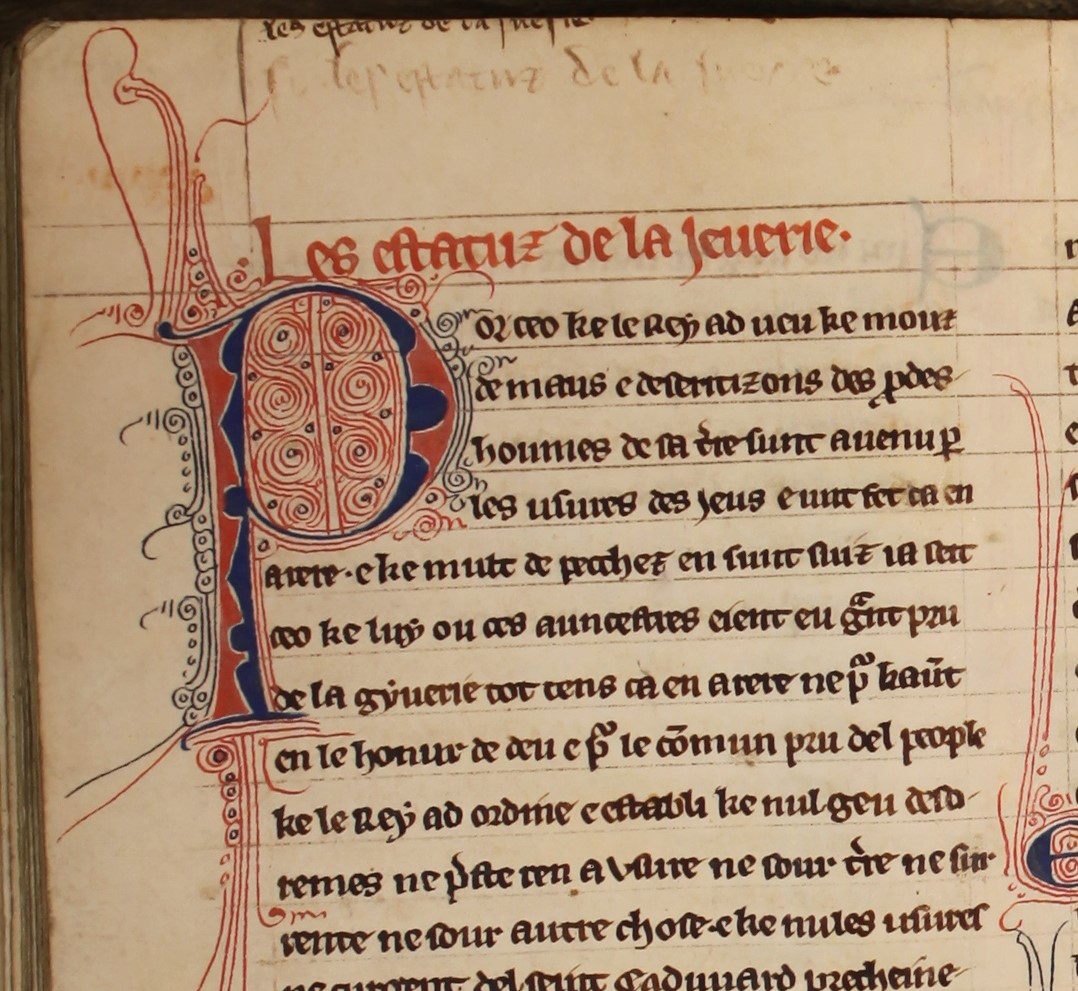 les estatuz de la juerie
les estatuz de la juerie
Les estatuz de la Jeuerie.
Por ceo ke le Rey ad ueu ke mouz
de maus e deseritizons des ꝓdes
houmes de sa t̉re sunt auenu ꝑ
les usures des Jeus e unt fet ca en
arere . e ke mult de pecchez en sunt siuz ia seit
ceo ke luy ou ces auncestres eient eu gᵃnt pru
de la gyuerie tot tens ca en arere ne pᵒ kaunt
en le honur de deu e pᵒ le cōmun pru del people
ke le Rey ad ordine e establi ke nul geu deso
remes ne p̉ste ren a Vsure ne sour t̉re ne sur
rente ne sour autre chose . e ke nules usures
ne curgent del seint Eadmuard precheine